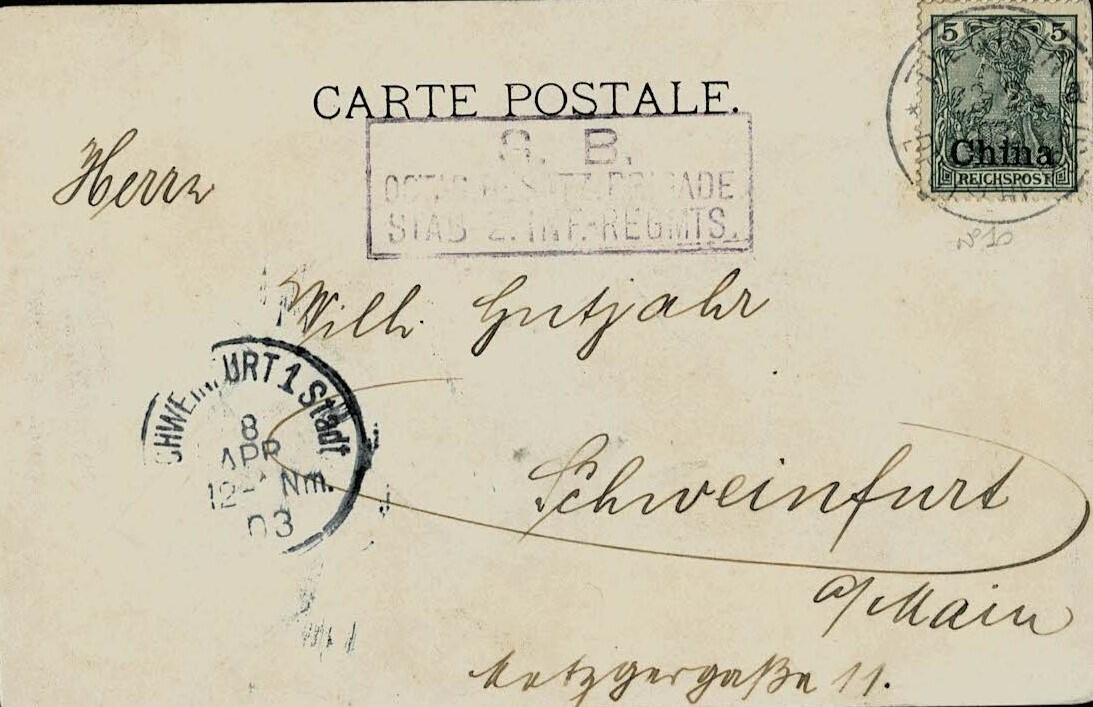 5 5
China
REICHSPOST
CARTE POSTALE.
S. B.
BRIGADE
STAB 2. INF.-REGMTS.
Nº 10
Herrn
Wilh. Gutjahr
SCHWEINFURT 1 Stadt
8
APR
12-1 Nm.
03
Schweinfurt
a/Main
Metzgergaße 11.